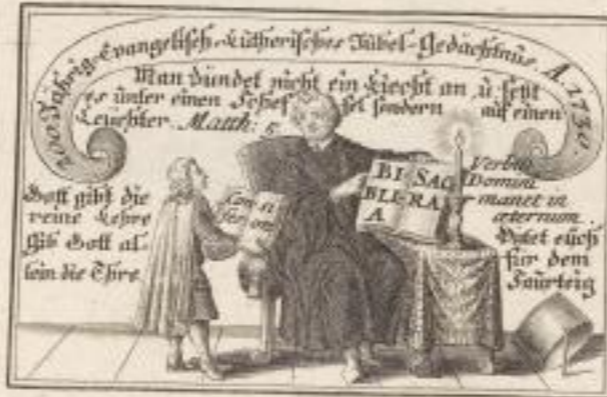 200 Jährig-Evangelisch-Lutherisches Jubel-Gedächtnus. A. 1730.
Man zündet nicht ein Liecht an u. setzt
es unter einen Scheffel sondern auf einen
Leuchter. Matth: 5.
Gott gibt die
reine Lehre
Gib Gott al-
lein die Ehre
Con si
fes on
BI SAC
BLI RA
A
Verbum
Domini
manet in
æternum
Hütet euch
für dem
Saurteig